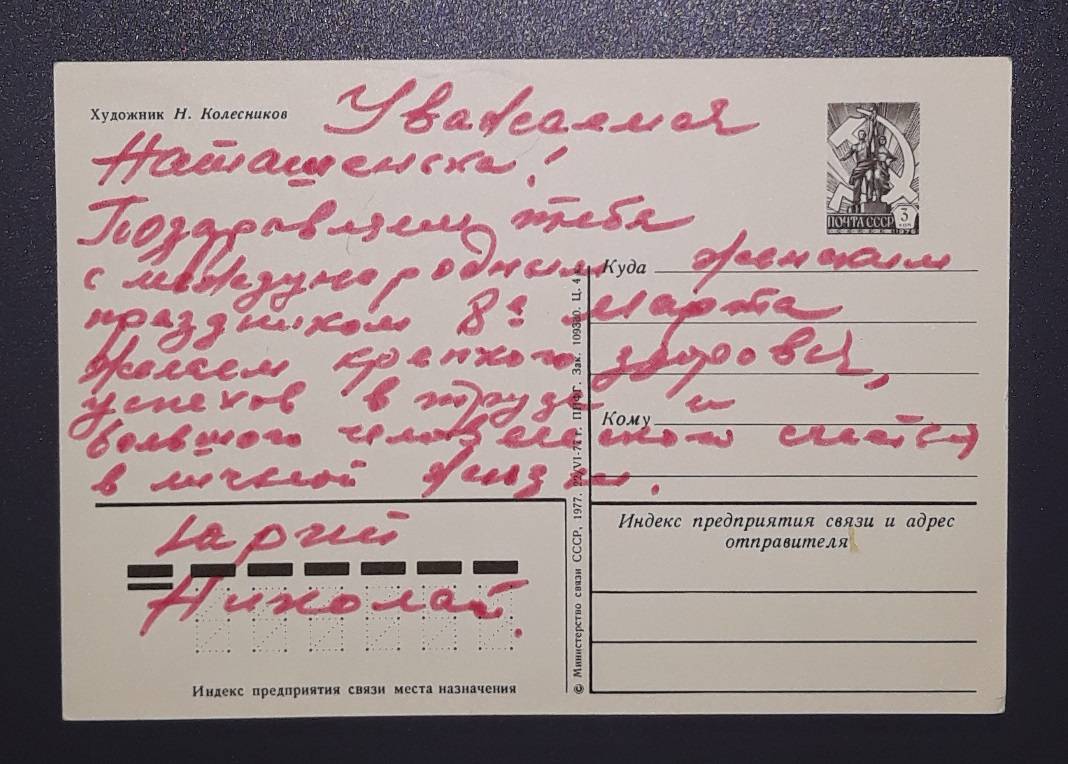 Художник Н. Колесников
Уважаемая
Наташенька!
Поздравляем тебя
с международным женским
праздником 8е марта
Желаем крепкого здоровья,
успехов в труде и
большого человеческого счастья
в личной жизни.
Юрий
Николай.
ПОЧТА СССР 3 коп
1976
Куда
Кому
Индекс предприятия связи и адрес
отправителя
Индекс предприятия связи места назначения
© Министерство связи СССР, 1977. 22/VI-77 г. ППФГ. Зак. Ц. 4 к.